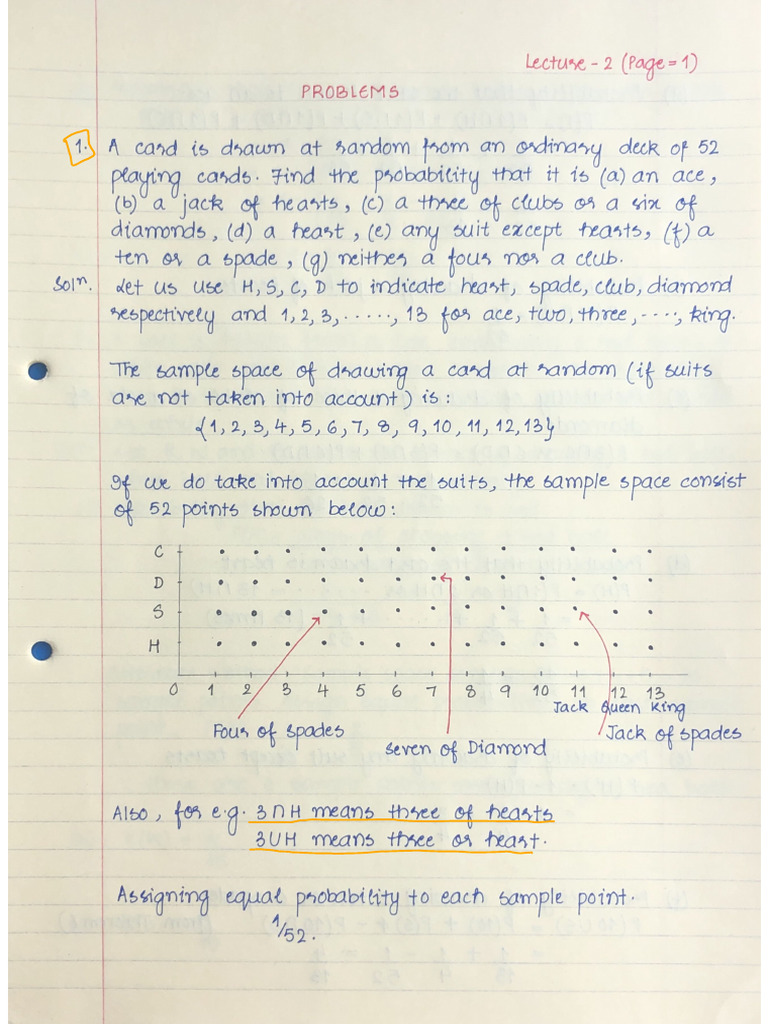 Lecture - 2 (Page = 1)
PROBLEMS
1. A card is drawn at random from an ordinary deck of 52
playing cards. Find the probability that it is (a) an ace,
(b) a jack of hearts, (c) a three of clubs or a six of
diamonds, (d) a heart, (e) any suit except hearts, (f) a
ten or a spade, (g) neither a four nor a club.
Solⁿ. Let us use H, S, C, D to indicate heart, spade, club, diamond
respectively and 1, 2, 3, ....., 13 for ace, two, three, ...., king.
The sample space of drawing a card at random (if suits
are not taken into account) is:
{1, 2, 3, 4, 5, 6, 7, 8, 9, 10, 11, 12, 13}
If we do take into account the suits, the sample space consist
of 52 points shown below:
C
D
S
H
0 1 2 3 4 5 6 7 8 9 10 11 12 13
Jack Queen King
Four of spades
Seven of Diamond
Jack of spades
Also, for e.g. 3∩H means three of hearts
3∪H means three or heart.
Assigning equal probability to each sample point.
1/52.